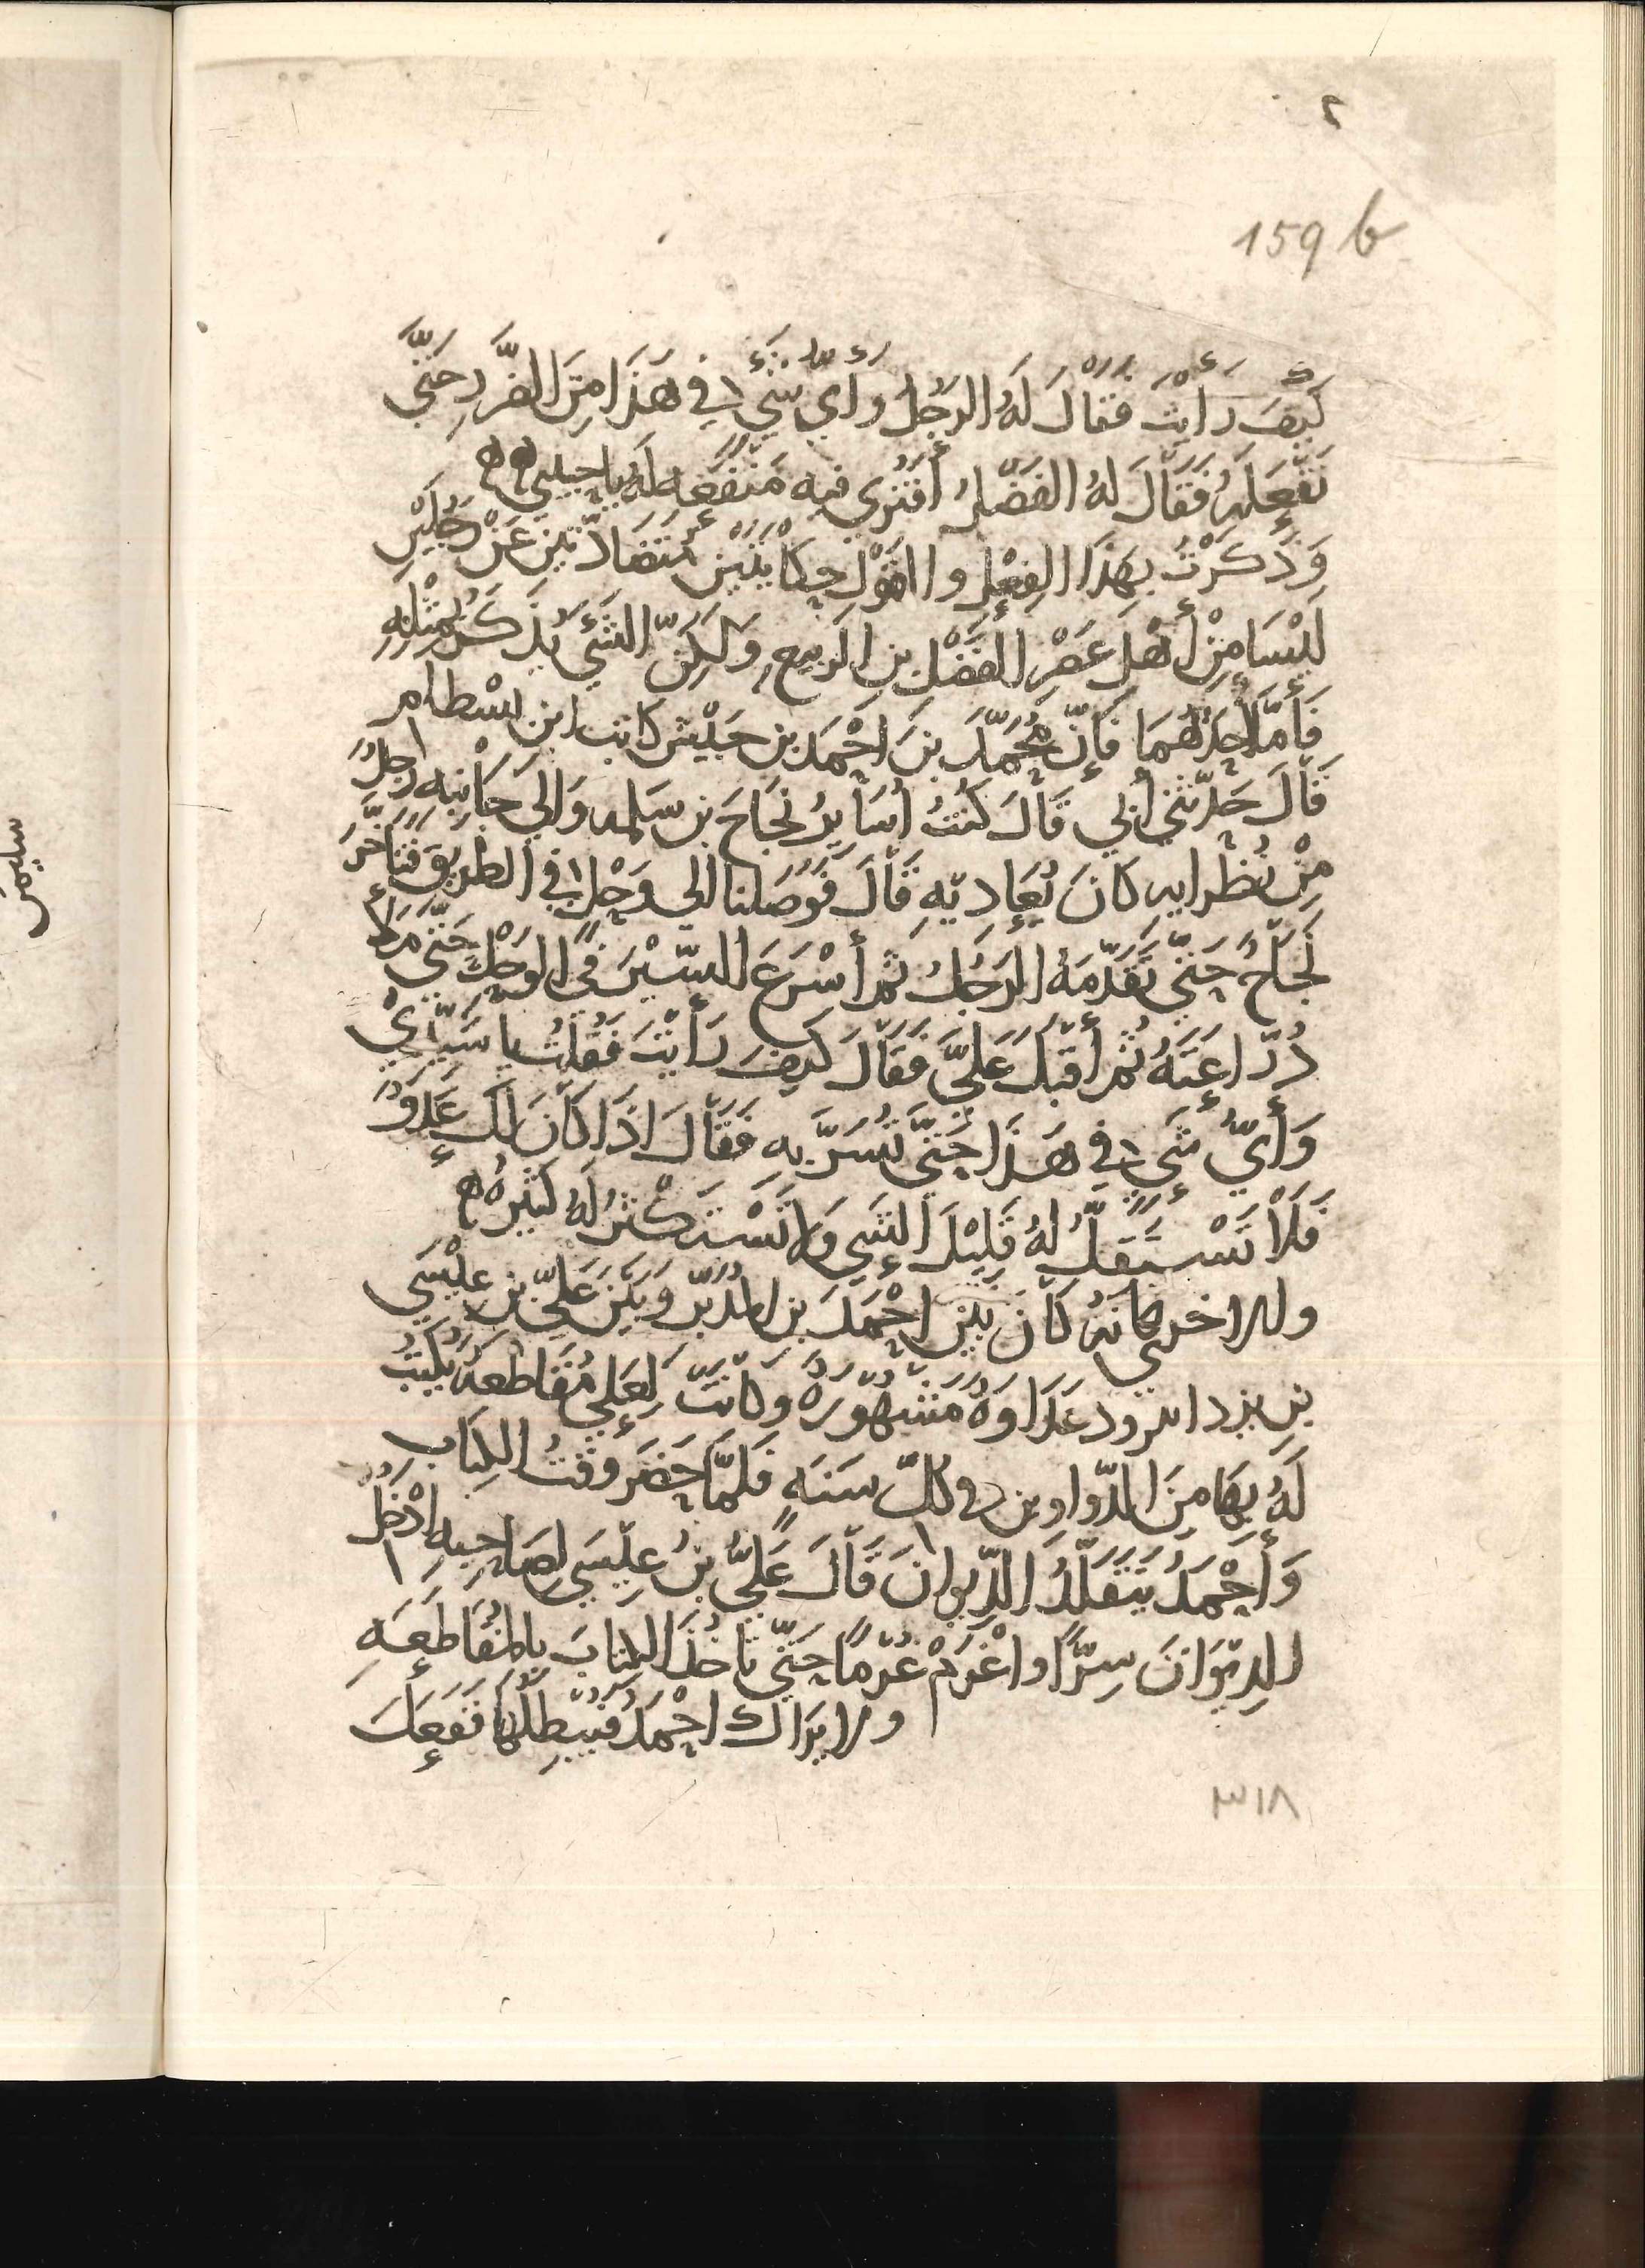 ٢
159 b
كَيفَ رَأيْتَ فقَالَ لَهُ الرَجُلُ وأيُّ شَيْءٍ في هَذَا مِنَ الضَّرَرِ حَتَّى
تَفْعَلَهُ فَقَالَ لهُ الفَضْلُ أفَتَرى فيه مَنْفَعَه لَهُ يا حبيبي
وَذَكَرْتُ بِهَذَا الفِعْلِ والقَوْلِ حِكَايَتَيْنِ مُتَضَادّتَيْنِ عَنْ رَجُلَيْنِ
لَيْسَا مِنْ أهْلِ عَصْرِ الفَضْلِ بنِ الرَبيعِ وَلَكِنّ الشَيْءَ يُذْكَرُ بمِثْلِهِ
فَأمَّا أحَدُهُمَا فَإنّ مُحَمّدَ بنَ احْمَدَ بن حَبَيْش كاتب ابن بسْطام
قَالَ حَدّثَني أبي قَالَ كُنْتُ أسَايِرُ نَجَاحَ بن سَلمه وَإلى جَانِبِه رَجلٌ
مِنْ نُظَرايه كَانَ يُعَادِيهِ قَالَ فَوَصَلنا الى وَحْلٍ في الطريقِ فَتَأخّرَ
نَجَاحٌ حَتَّى تَقَدّمَهُ الرَجُلُ ثمّ أسْرَعَ السّيْرَ في الوَحْلِ حَتّى مَلأ
دُرّاعَتَهُ ثمّ أقبَلَ عَلَيَّ فَقَالَ كَيفَ رَأيْتَ فَقُلتُ يا سَيّدِيْ
وَأيُّ شَيءٍ في هَذَا حَتَّى تُسَرّ بِهِ فَقَالَ اذَا كَانَ لَكَ عَدُوٌ
فَلَا تَسْتَقِلُّ لهُ قَلِيْلَ الشَيءِ وَلا تَسْتَكْثرُ لَهُ كَثيرهُ
والاخرى كانه كَانَ بَيْنَ احْمَدَ بن المُدَبّر وَبَيْنَ عَليّ بن عِيْسَى
بن يزدانيرود عَدَاوَةٌ مَشْهُوْرَةٌ وكَانَتْ لِعَلِيّ مُقَاطعَهٌ يُكْتَبُ
لَهُ بِهَا مِنَ الدّواوين في كُلّ سَنَه فَلَمَّا حَضَرَ وَقتُ الكِتَابِ
وَأحْمَدُ يَتَقَلّدُ الدِّيوانَ قَالَ عَليُّ بنُ عِيْسَى لِصَاحِبِهِ ادْخُلِ
الدِيْوَانَ سِرّاً واغْرَمْ غُرْمًا حَتّى تَاخُذَ الكِتابَ بِالمُقَاطَعَهِ
ولا يَرَاكَ احْمَدُ فَيُبْطِلَهَا فَفَعَلَ
٣١٨